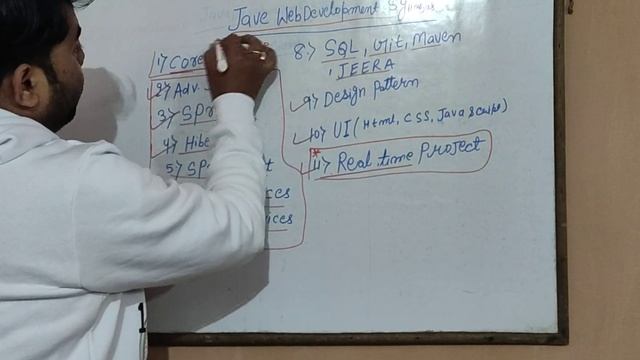 Jave WebDevelopment
1) Core
2) Adv.
3) Spr
4) Hibe
5) Sp t
ces
ices
8) SQL, Git, Maven
, JEERA
9) Design Pattern
10) UI (Html, CSS, Java Script)
* 11) Real time Project